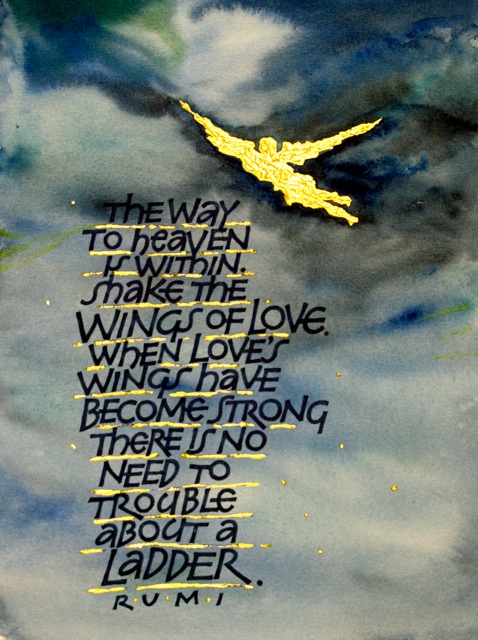 the way
to heaven
is within.
shake the
wings of love.
when love's
wings have
become strong
there is no
need to
trouble
about a
ladder.
R·U·M·I